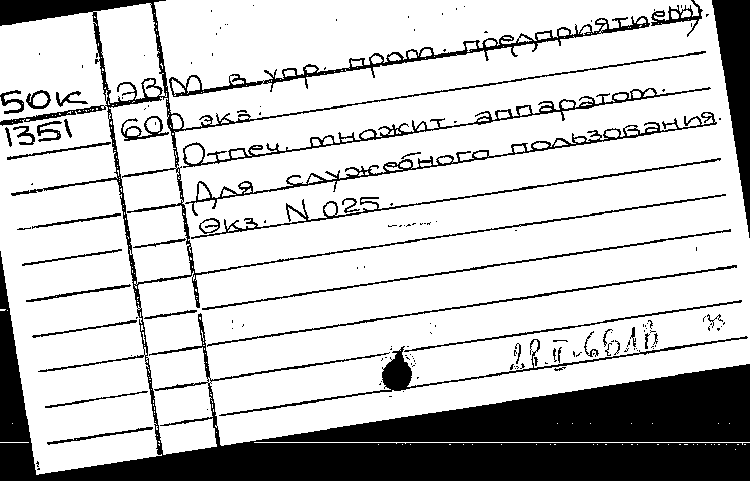 50к ЭВМ в упр. пром. предприятием).
1351 600 экз.
Отпеч. множит. аппаратом.
Для служебного пользования.
Экз. N 025.
33